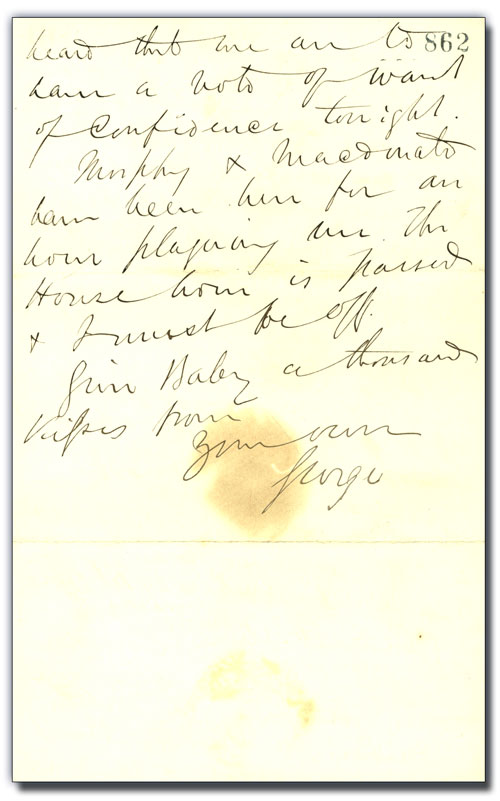 862
heard that we are to
have a vote of want
of Confidence tonight.
Morphy & Macdonald
have been here for an
hour plaguing me. The
House hour is passed
& I must be off.
Give Baby a thousand
kisses from
Your own
George